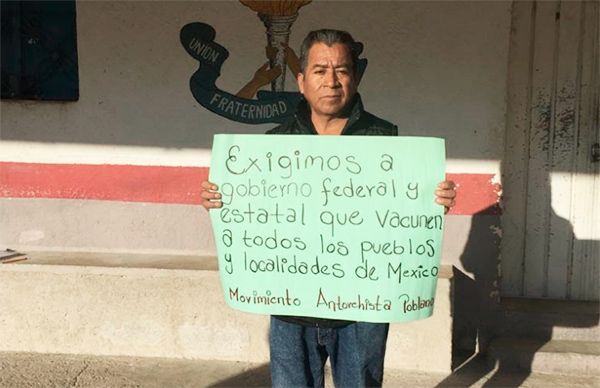 UNION
FRATERNIDAD
Exigimos a
gobierno federal y
estatal que vacunen
a todos los pueblos
y localidades de Mexico
Movimiento Antorchista Poblano